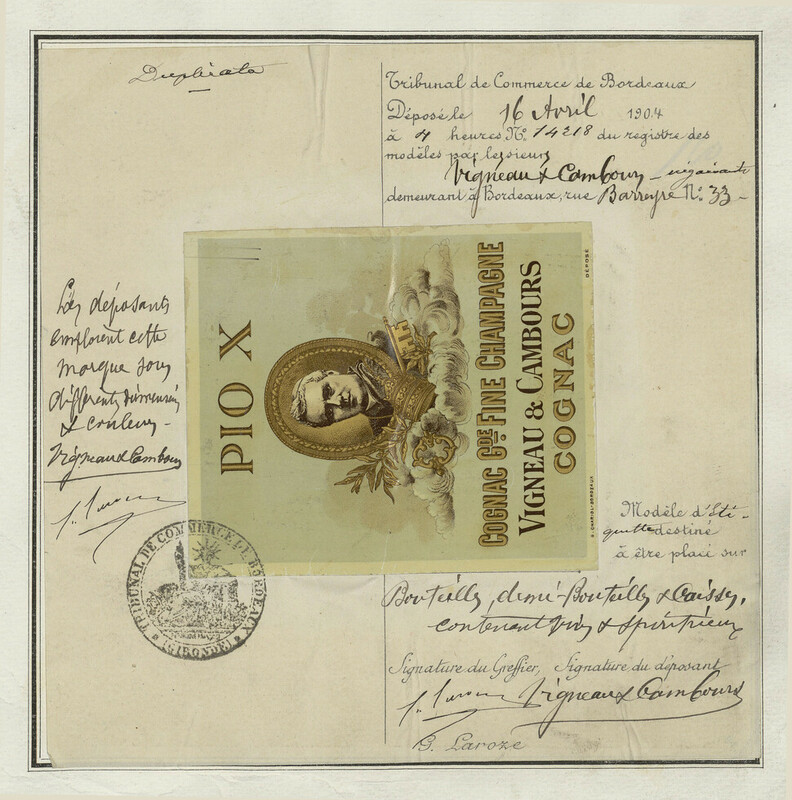 Duplicata
Tribunal de Commerce de Bordeaux
Déposé le 16 Avril 1904
à 4 heures No. 14218 du registre des
modèles par les sieurs
Vigneau & Cambours – négociants
demeurant à Bordeaux, rue Barreyre No. 33 –
Les déposants
emploient cette
marque sous
différentes dimensions
& couleurs –
Vigneau & Cambours
PIO X
COGNAC GDE FINE CHAMPAGNE
VIGNEAU & CAMBOURS
COGNAC
DÉPOSÉ
BORDEAUX
TRIBUNAL DE COMMERCE DE BORDEAUX
Modèle d'Eti-
quette destiné
à être placé sur
Bouteilles, demi-Bouteilles & Caisses,
contenant Vins & Spiritueux
Signature du Greffier, Signature du déposant
Vigneau & Cambours
G. Laroze